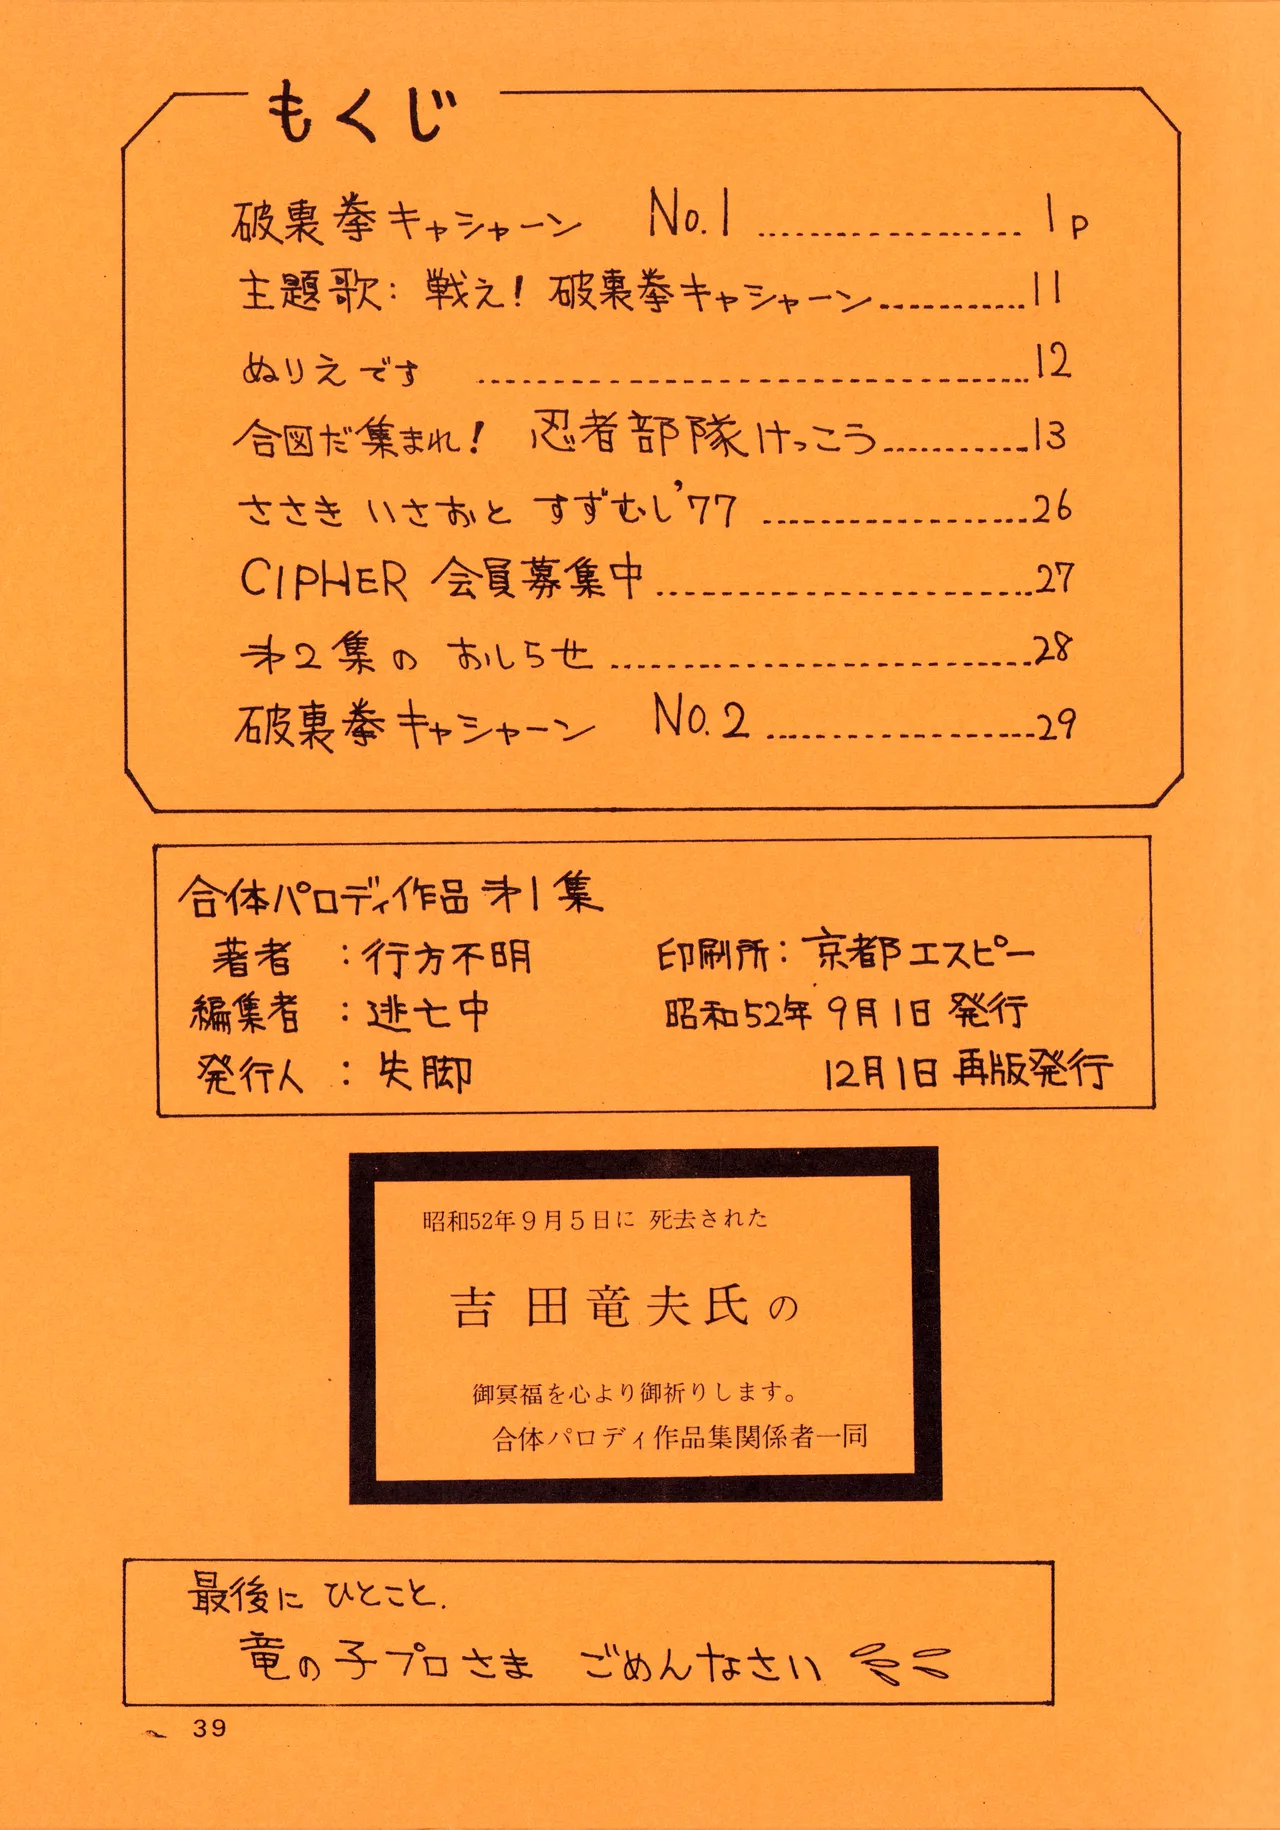 もくじ
破裏拳キャシャーン No.1 ............ 1p
主題歌: 戦え! 破裏拳キャシャーン............11
ぬりえです ............12
合図だ集まれ! 忍者部隊けっこう............13
ささき いさおと すずむし'77 ............26
CIPHER 会員募集中............27
才2集の おしらせ............28
破裏拳キャシャーン No.2 ............29
合体パロディ作品才1集
著者 :行方不明
編集者 :逃亡中
発行人 :失脚
印刷所: 京都エスピー
昭和52年9月1日 発行
12月1日 再版発行
昭和52年9月5日に 死去された
吉田竜夫氏の
御冥福を心より御祈りします。
合体パロディ作品集関係者一同
最後に ひとこと.
竜の子プロさま ごめんなさい
39